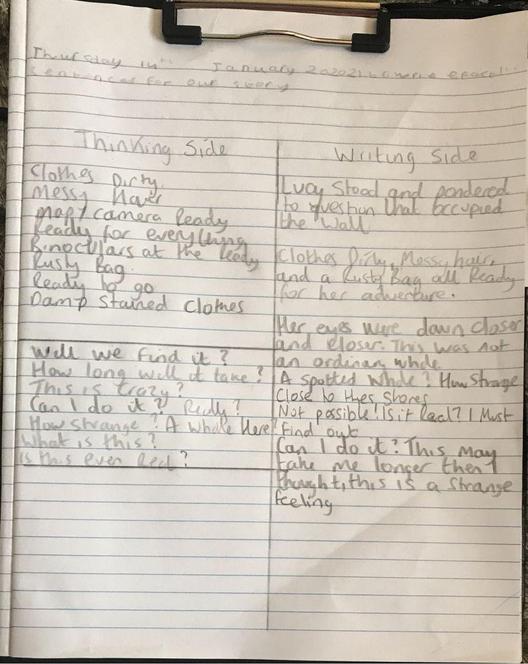 Thursday
January
sentences for our story
Thinking Side
Clothes Dirty
Messy Haver
map/camera Ready
Ready for everything
Binoctulars at the Ready
Rusty Bag
Ready to go
Damp Stained Clothes
Will we find it?
How long will it take?
This is Crazy?
Can I do it? Really?
How strange? A Whale Here!
What is this?
is this even Real?
Writing Side
Lucy Stood and pondered
to question that occupied
the Wall
Clothes Dirty, Messy hair,
and a Rusty Bag all Ready
for her adventure.
Her eyes were down closer
and closer. This was not
an ordinary whale
A spotted Whale? How Strange
Close to shores
Not possible! Is it Real? I Must
find out
Can I do it? This May
take me longer then I
thought, this is a strange
feeling